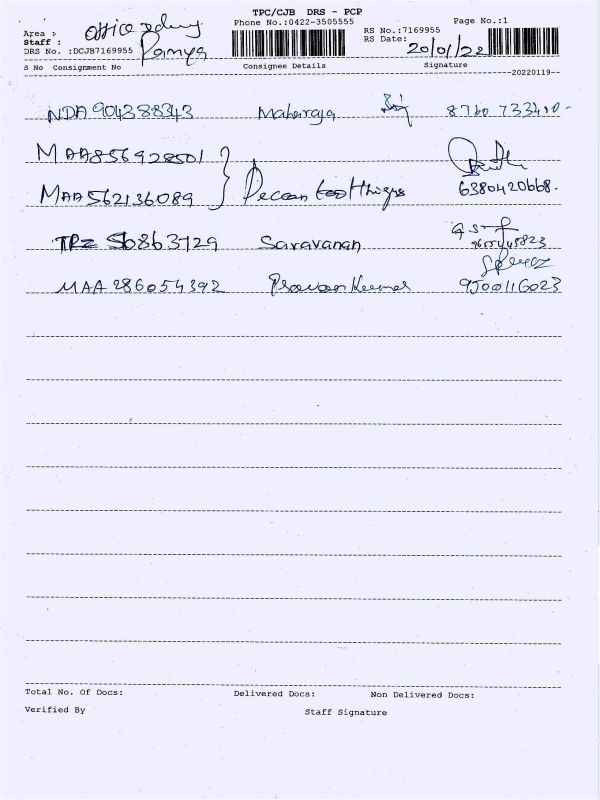 TPC/CJB DRS - PCP
Phone No.:0422-3505555
Page No.:1
Area : office
Staff : Ramya
RS No.:7169955
RS Date: 20/01/22
DRS No. :DCJB7169955
S No Consignment No Consignee Details Signature
--20220119--
NDA 904388343 Maharaja
MAA856928501
MAA562136089 6380420668.
TPZ 56863729 Saravanan
MAA 286054392 Pravan Kumar 9500116023
Total No. Of Docs: Delivered Docs: Non Delivered Docs:
Verified By Staff Signature